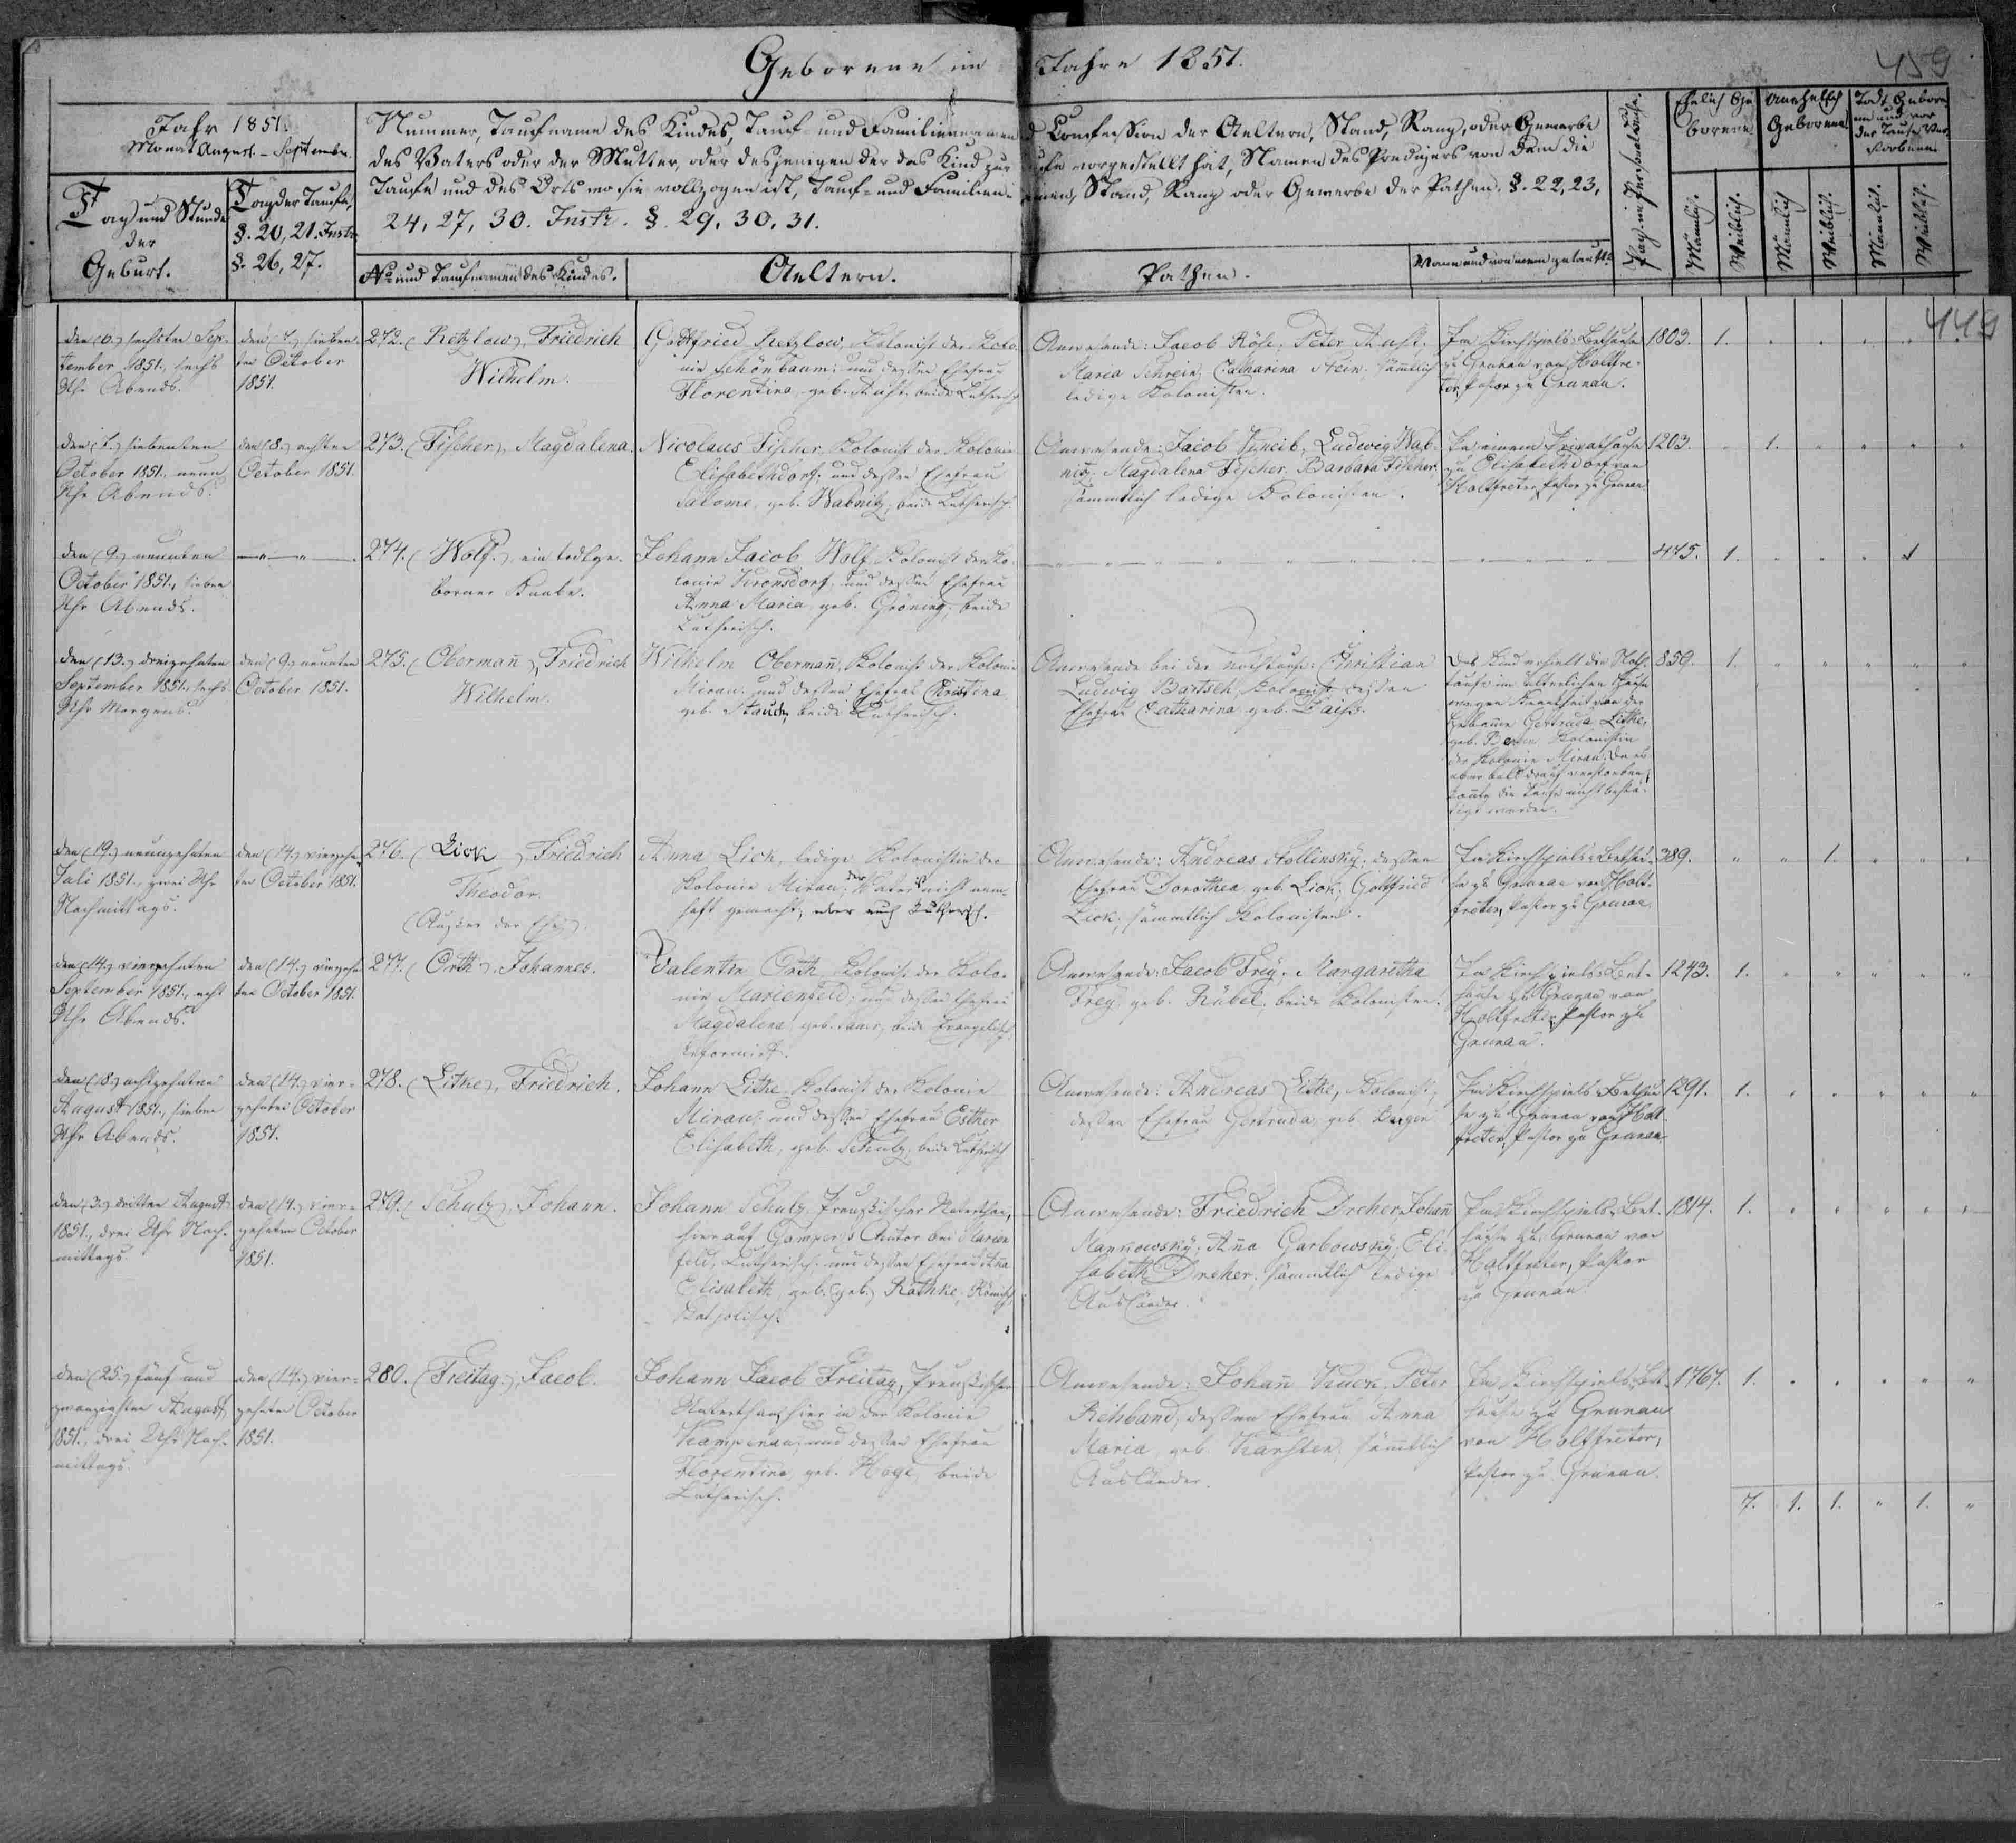 Geborene im Jahre 1851.
459
Jahr 1851.
Monat August - September.
Tag und Stunde
der
Geburt.
Tag der Taufe.
§. 20, 21. Instr.
§. 26, 27.
Nummer, Taufname des Kindes, Tauf- und Familiennamen
des Vaters oder der Mutter, oder desjenigen der das Kind zur
Taufe und des Orts wo sie vollzogen ist, Tauf- und Familien-
24, 27, 30. Instr. §. 29, 30, 31.
Confession der Aeltern, Stand, Rang, oder Gewerbe
vorgestellt hat, Namen des Predigers von dem die
Stand, Rang oder Gewerbe der Pathen. §. 22, 23,
No und Taufnamen des Kindes.
Aeltern.
Pathen.
Wann und von wem getauft.
Pag. im Personalbuche.
Ehelich Ge-
borene
Unehelich
Geborene
Todt Gebore-
ne und vor
der Taufe Ver-
storbene
Männlich.
Weiblich.
Männlich
Weiblich.
Männlich.
Weiblich.
449
den (6.) sechsten Sep-
tember 1851., sechs
Uhr Abends.
den (7.) sieben-
ten October
1851.
272. (Retzlow), Friedrich
Wilhelm.
Gottfried Retzlow, Kolonist der Kolo-
nie Schönbaum; und dessen Ehefrau
Florentina, geb. beide Lutherisch
Anwesende: Jacob Röse, Peter
Maria Schrein, Catharina Stein, sämmtlich
ledige Kolonisten.
Im Kirchspiels-Bethause
zu Grunau von Holtfre-
ter, Pastor zu Grunau.
1803. 1.
den (7.) siebenten
October 1851. neun
Uhr Abends.
den (8.) achten
October 1851.
273. (Fischer), Magdalena.
Nicolaus Fischer, Kolonist der Kolonie
Elisabethdorf, und dessen Ehefrau
Salome, geb. Wabnitz, beide Lutherisch.
Anwesende: Jacob Kneib, Ludwig Wab-
nitz, Magdalena Fischer, Barbara Fischer,
sämmtlich ledige Kolonisten.
In einem Privathause
zu Elisabethdorf von
Holtfreter, Pastor zu Grunau
1203. 1.
den (9.) neunten
October 1851., sieben
Uhr Abends.
274. (Wolf.), ein todtge-
borner Knabe.
Johann Jacob Wolf, Kolonist der Ko-
lonie Kronsdorf, und dessen Ehefrau
Anna Maria, geb. Gröning, beide
Lutherisch.
475. 1. 1
den (13.) dreizehnten
September 1851., sechs
Uhr Morgens.
den (9.) neunten
October 1851.
275. (Obermañ), Friedrich
Wilhelm.
Wilhelm Obermañ, Kolonist der Kolonie
Mirau, und dessen Ehefrau Christina
geb. Staude, beide Lutherisch.
Anwesende bei der Nothtaufe: Christian
Ludwig Bartsch, Kolonist, dessen
Ehefrau Catharina geb.
Das Kind erhielt die Noth-
taufe im älterlichen Hause
wegen Krankheit von der
Hebamme Gertruda Lithke,
geb. Kolonistin
der Kolonie Mirau; da es
aber bald drauf verstorben,
konnte die Taufe nicht bestä-
tigt werden.
859. 1.
den (19.) neunzehnten
Juli 1851., zwei Uhr
Nachmittags.
den (14.) vierzehn-
ten October 1851.
276. (Lick), Friedrich
Theodor.
(Ausser der Ehe).
Anna Lick, ledige Kolonistin der
Kolonie Mirau, der Vater nicht nam-
haft gemacht, aber auch Luthersch.
Anwesende: Andreas Stollinsky; dessen
Ehefrau Dorothea, geb. Lick, Gottfried
Lick, sämmtlich Kolonisten.
Im Kirchspiels-Bethau-
se zu Grunau von Holt-
freter, Pastor zu Grunau.
389. 1.
den (14.) vierzehnten
September 1851., acht
Uhr Abends.
den (14.) vierzehn-
ten October 1851.
277. (Orth), Johannes.
Valentin Orth, Kolonist der Kolo-
nie Marienfeld, und dessen Ehefrau
Magdalena, geb. beide Evangelisch
Reformirt.
Anwesende: Jacob Frey, Margaretha
Frey, geb. Rübel, beide Kolonisten.
Im Kirchspiels-Bet-
hause zu Grunau von
Holtfreter, Pastor zu
Grunau.
1243. 1.
den (18.) achtzehnten
August 1851., sieben
Uhr Abends.
den (14.) vier-
zehnten October
1851.
278. (Lithe), Friedrich.
Johann Lithe, Kolonist der Kolonie
Mirau, und dessen Ehefrau Esther
Elisabeth, geb. Schulz, beide Lutherisch
Anwesende: Andreas Lithe, Kolonist,
dessen Ehefrau Gertruda, geb. Berger
Im Kirchspiels-Bethau-
se zu Grunau von Holt-
freter, Pastor zu Grunau.
1291. 1.
den (3.) dritten August
1851., drei Uhr Nach-
mittags.
den (14.) vier-
zehnten October
1851.
279. (Schulz), Johann.
Johann Schulz, Preussischer Unterthan,
hier auf Gamper's Chutor bei Marien-
feld, Lutherisch, und dessen Ehefrau Aña
Elisabeth geb. (geb.) Rathke, Römisch
Katholisch.
Anwesende: Friedrich Dreher, Johañ
Mankowsky, Aña Garbowsky, Eli-
sabeth Dreher, sämmtlich ledige
Ausländer.
Im Kirchspiels-Bet-
hause zu Grunau von
Holtfreter, Pastor
zu Grunau.
1814. 1.
den (25.) fünf und
zwanzigsten August
1851., drei Uhr Nach-
mittags.
den (14.) vier-
zehnten October
1851.
280. (Freitag), Jacob.
Johann Jacob Freitag, Preussischer
Unterthan, hier in der Kolonie
Kampenau, und dessen Ehefrau
Florentine, geb. Hoge, beide
Lutherisch.
Anwesende: Johañ Kuck, Peter
Rehband, dessen Ehefrau Anna
Maria, geb. Karsten, sämmtlich
Ausländer.
Im Kirchspiels-Bet-
hause zu Grunau
von Holtfreter,
Pastor zu Grunau.
1767. 1.
7. 1. 1. " 1. "